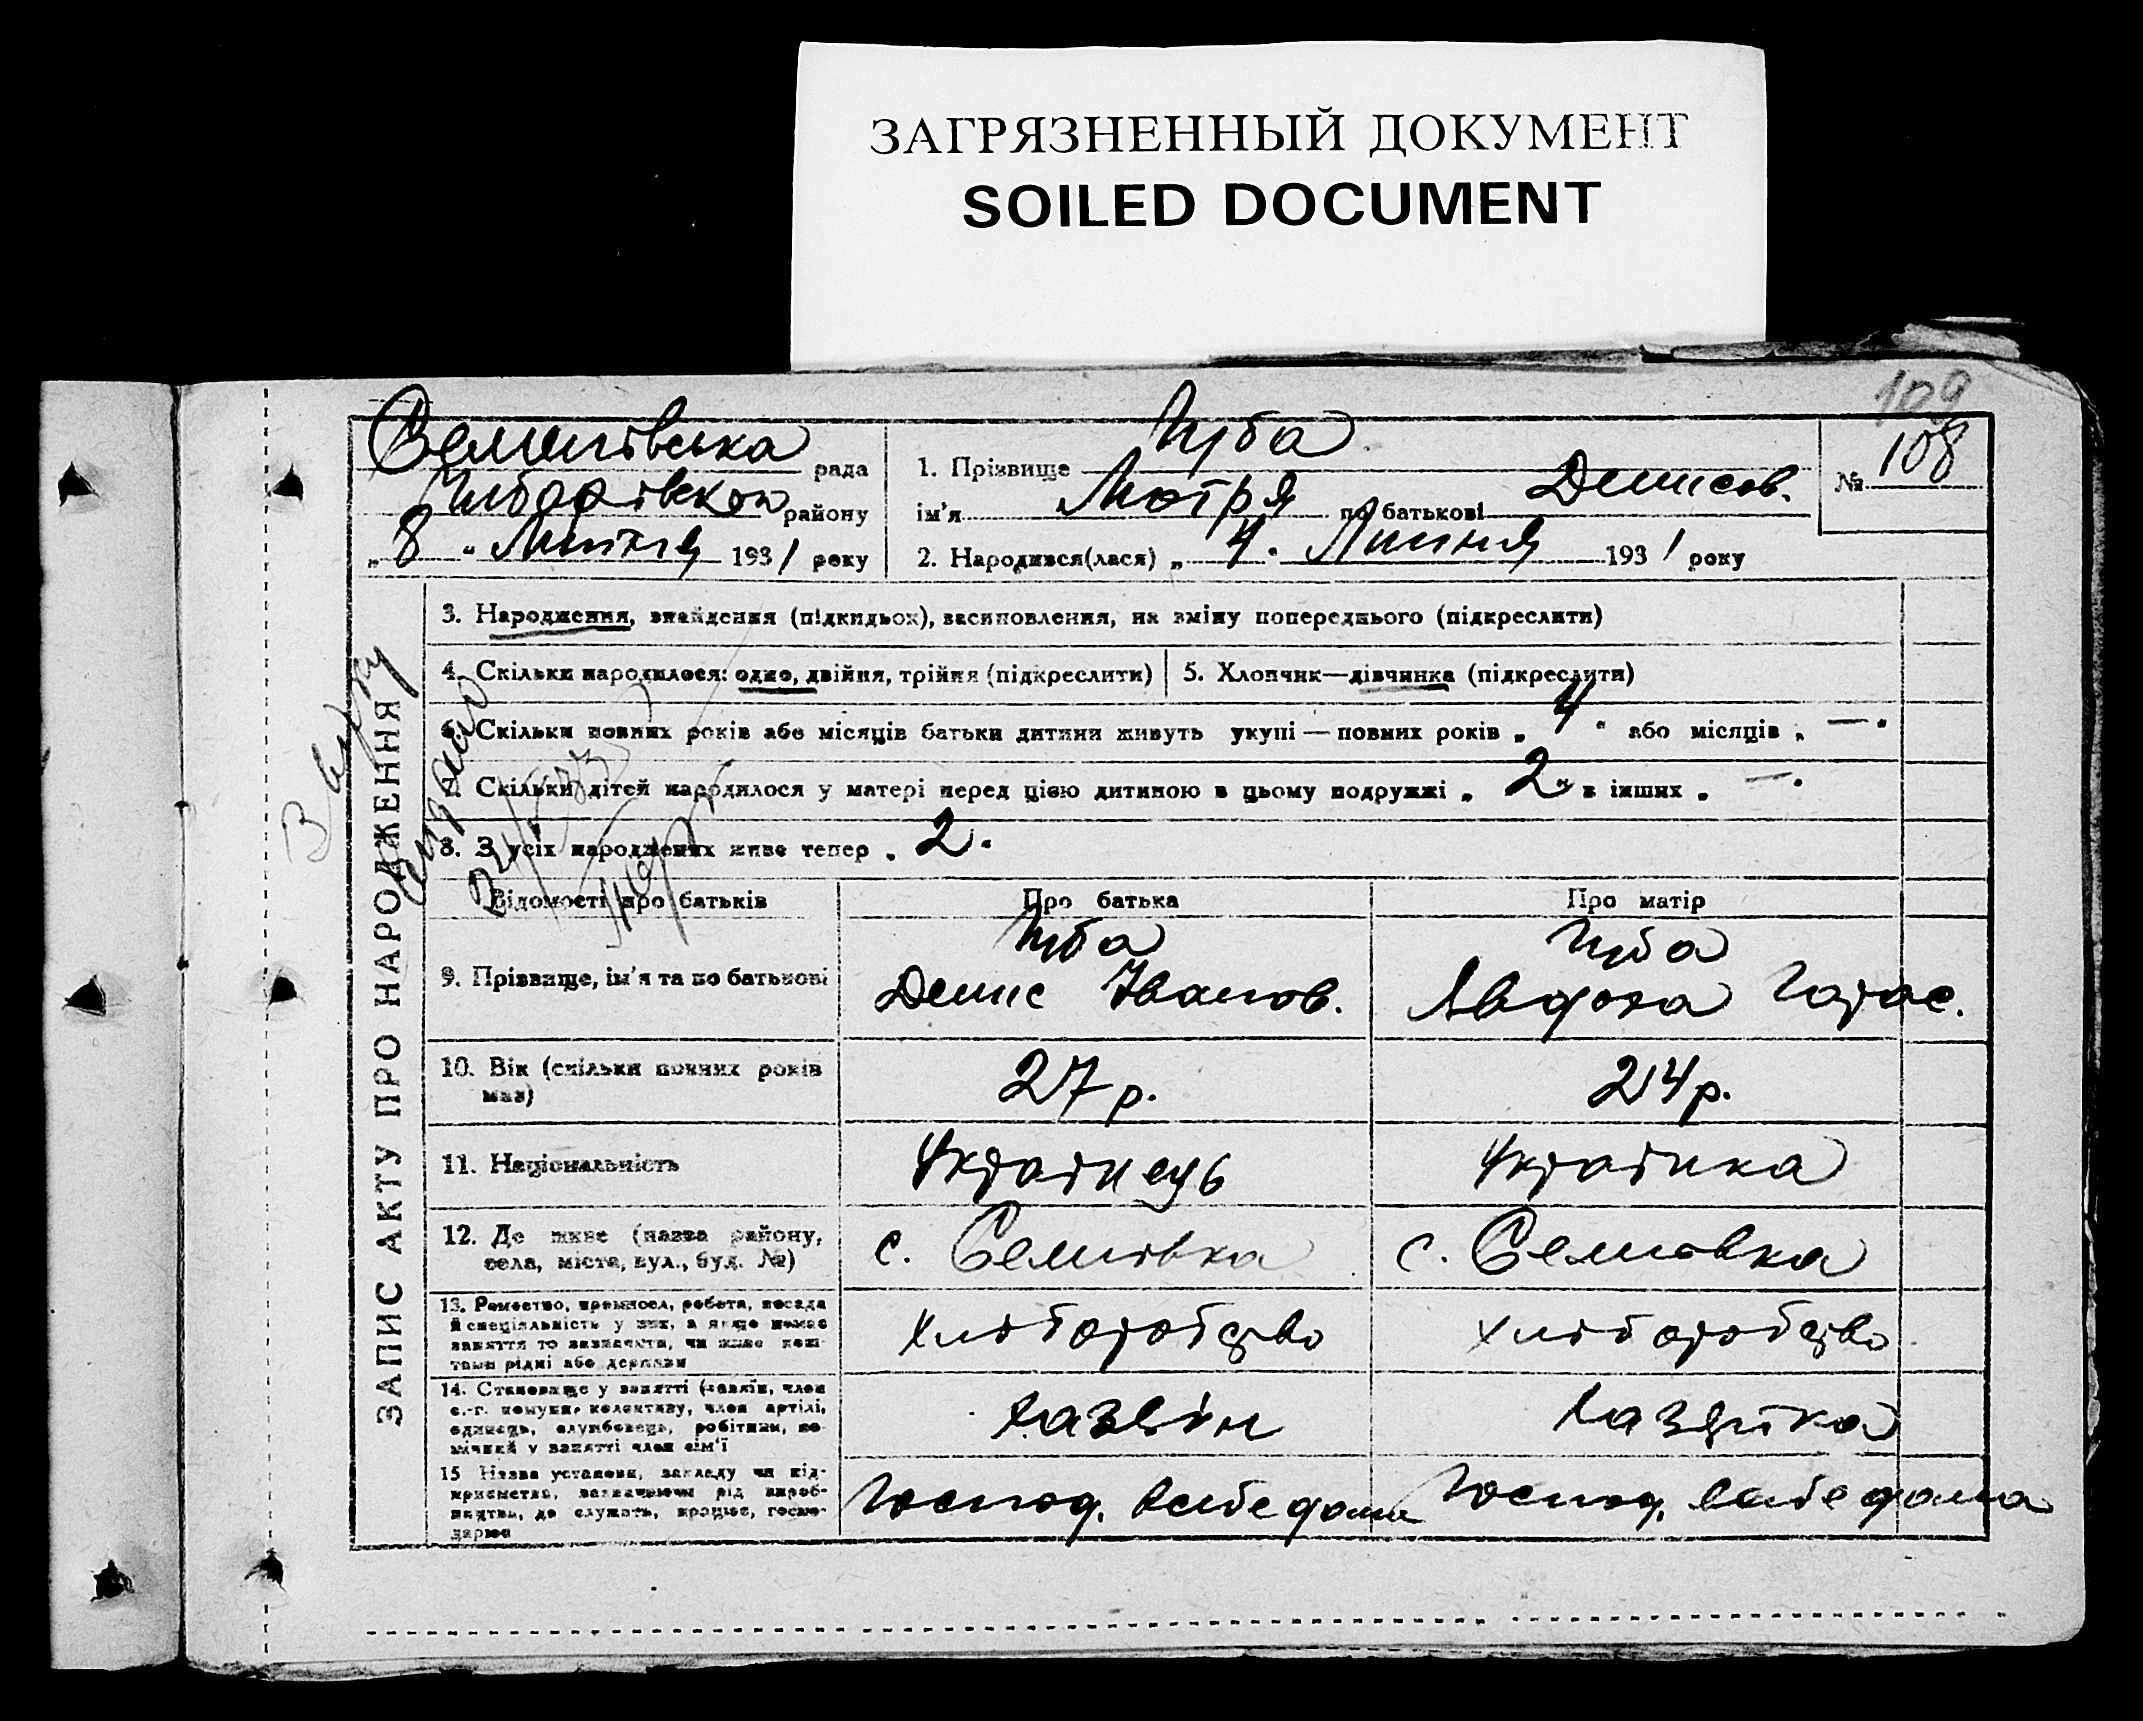 ЗАГРЯЗНЕННЫЙ ДОКУМЕНТ
SOILED DOCUMENT
109
рада
району
„ 8 " Липня 1931 року
1. Прізвище Чуба
ім'я Мотря по батькові Денисов.
2. Народився(лася) „ 4. Липня 1931 року
№ 108
ЗАПИС АКТУ ПРО НАРОДЖЕННЯ
3. Народження, знайдення (підкидьок), засиновлення, на зміну попереднього (підкреслити)
4. Скільки народилося: одно, двійня, трійня (підкреслити)
5. Хлопчик—дівчинка (підкреслити)
6. Скільки повних років або місяців батьки дитини живуть укупі — повних років „ 4 " або місяців „ — .
7. Скільки дітей народилося у матері перед цією дитиною в цьому подружжі „ 2 " в інших „ — .
8. З усіх народжених живе тепер „ 2.
Відомості про батьків
Про батька
Про матір
9. Прізвище, ім'я та по батькові
Чуба
Денис Іванов.
Чуба
Явдоха Тарас.
10. Вік (скільки повних років
має)
27 р.
24 р.
11. Національність
Українець
Українка
12. Де живе (назва району,
села, міста, вул., буд. №)
с. Семенівка
с. Семенівка
13. Ремество, промисел, робота, посада
й спеціяльність у них, а якщо немає
заняття то зазначити, чи живе кош-
тами рідні або держави
Хліборобство
Хліборобство
14. Становище у занятті (хазяїн, член
с.-г. комуни, колективу, член артілі,
одинець, службовець, робітник, по-
мічний у занятті член сім'ї
Хазяїн
Хазяйка
15 Назва установи, закладу чи під-
приємства, зазначаючи рід вироб-
ництва, де служить, працює, госпо-
дарює
Господ. в себе дома
Господ. в себе дома